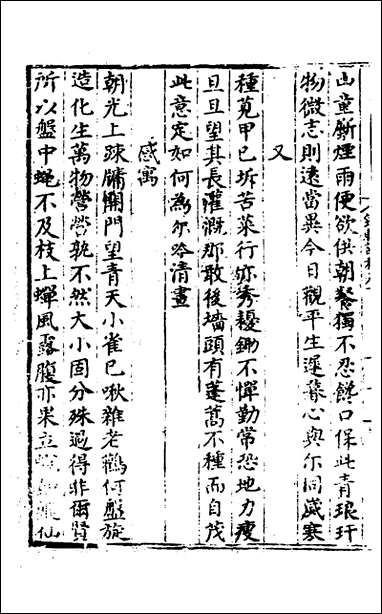 山童斸煙雨便欲供朝餐獨不忍饞口保此青琅玕
物微志則遠當異今日觀平生遲暮心與尔同歲寒
又
種莧甲已坼苦菜行亦秀耰鋤不憚勤常恐地力瘦
旦旦望其長灌溉那敢後墻頭有蓬蒿不種而自茂
此意定如何為尔吟清晝
感寓
朝光上疎牖開門望青天小雀已啾雜老鶴何盤旋
造化生萬物營營孰不然大小固分殊過得非爾賢
所以盤中蝇不及枝上蟬風露腹亦果立仙